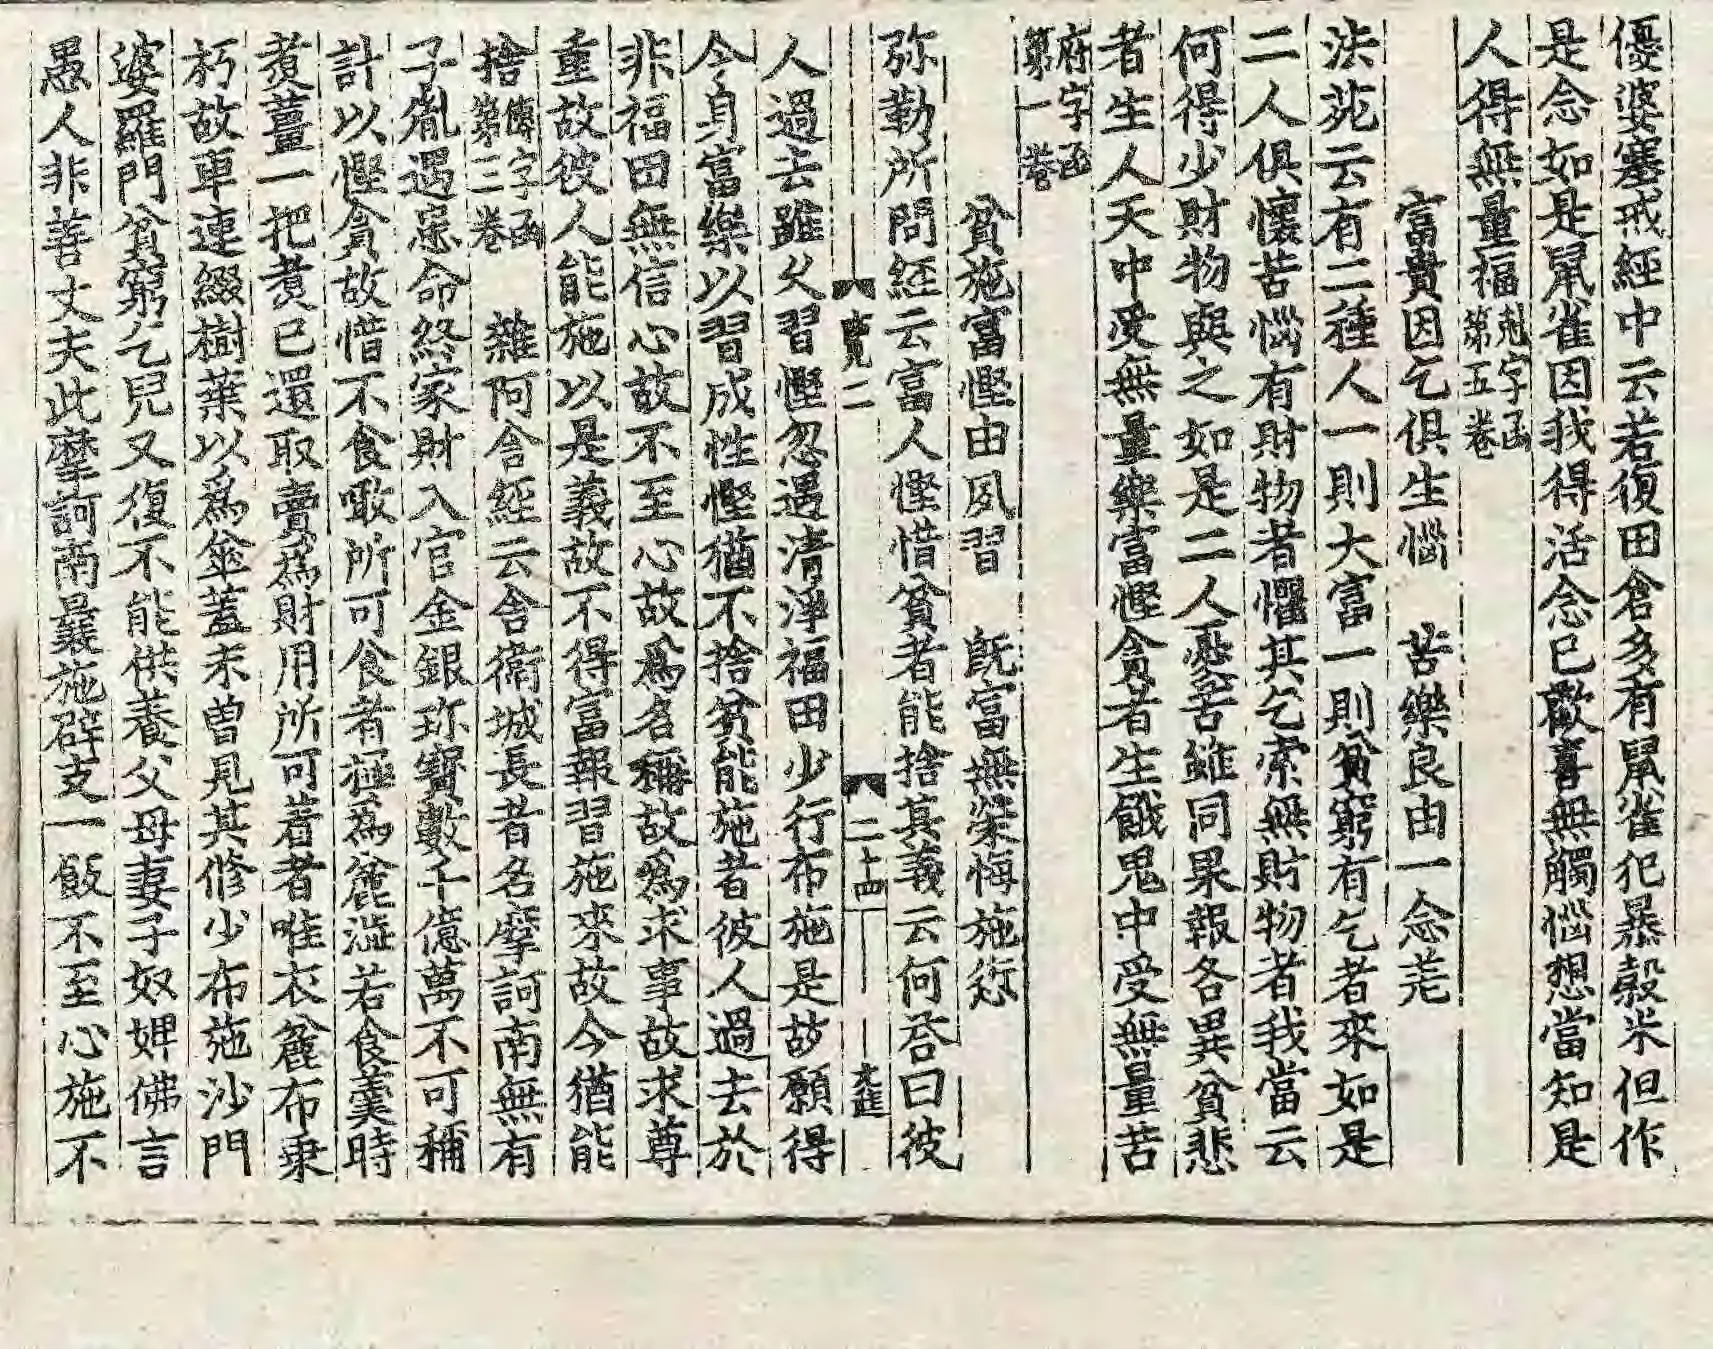 優婆塞戒經中云若復田倉多有鼠雀犯暴穀米但作
是念如是鼠雀因我得活念已歡喜無觸惱想當知是
人得無量福尅字函第五卷
富貴因乞俱生惱　苦樂良由一念差
法苑云有二種人一則大富一則貧窮有乞者來如是
二人俱懷苦惱有財物者懼其乞索無財物者我當云
何得少財物與之如是二人憂苦雖同果報各異貧悲
者生人天中受無量樂富慳貪者生餓鬼中受無量苦
府字函第一卷
貧施富慳由夙習　旣富無榮悔施愆
弥勒所問經云富人慳惜貧者能捨其義云何答曰彼
覽二　二十四
人過去雖久習慳忽遇清淨福田少行布施是故願得
今身富樂以習成性慳猶不捨貧能施者彼人過去於
非福田無信心故不至心故爲名稱故爲求事故求尊
重故彼人能施以是義故不得富報習施來故今猶能
捨傳字函第三卷　雜阿含經云舍衛城長者名摩訶南無有
子胤遇患命終家財入官金銀珎寶數千億萬不可稱
計以慳貪故惜不食噉所可食者極爲麁澁若食羹時
煑薑一把煑已還取賣爲財用所可着者唯衣麁布乗
朽故車連綴樹葉以爲傘蓋未曾見其修少布施沙門
婆羅門貧窮乞兒又復不能供養父母妻子奴婢佛言
愚人非善丈夫此摩訶南曩施辟支一飯不至心施不